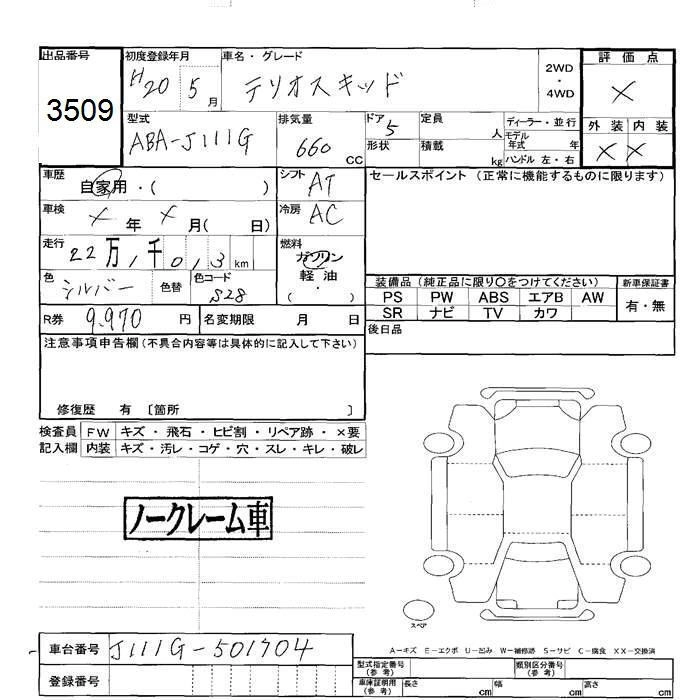 出品番号 初度登録年月 車名・グレード 2WD・4WD 評価点
3509 H20 5月 テリオスキッド ×
型式 排気量 ドア 定員 ディーラー・並行 外装 内装
ABA-J111G 660 CC 5 人 モデル年式 年 × ×
形状 積載 kg ハンドル 左・右
車歴 シフト セールスポイント (正常に機能するものに限ります)
自家用・( ) AT
車検 冷房
× 年 × 月( 日) AC
走行 燃料
22万,1千0,3 km ガソリン
軽油
・
( )
色 色替 色コード 装備品 (純正品に限り○をつけてください) 新車保証書
シルバー S28 PS PW ABS エアB AW 有・無
SR ナビ TV カワ
R券 9.970 円 名変期限 月 日 後日品
注意事項申告欄(不具合内容等は具体的に記入して下さい)
修復歴 有 〔箇所 〕
検査員 FW キズ・飛石・ヒビ割・リペア跡・×要
記入欄 内装 キズ・汚レ・コゲ・穴・スレ・キレ・破レ
ノークレーム車
スペア
A−キズ E−エクボ U−凹み W−補修跡 S−サビ C−腐食 XX−交換済
車台番号 J111G-501704
登録番号
型式指定番号(参考) 類別区分番号(参考)
車庫証明用(参考) 長さ cm 幅 cm 高さ cm